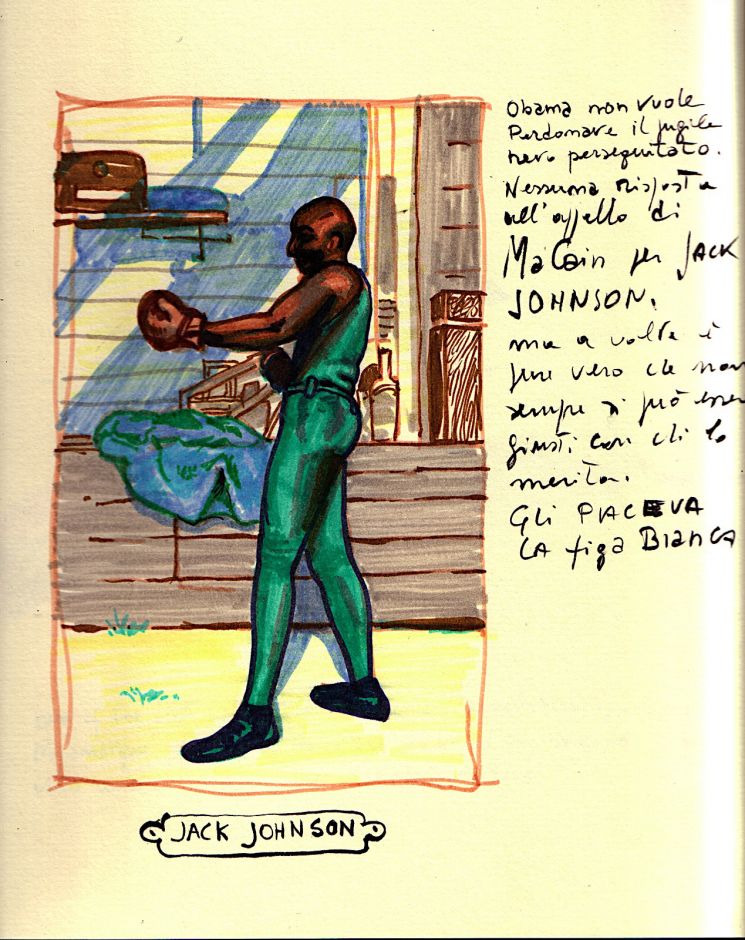 Obama non vuole
Perdonare il pugile
nero perseguitato.
Nessuna risposta
all'appello di
McCain per JACK
JOHNSON.
ma a volte è
pure vero che non
sempre si può esser
giusti con chi lo
merita.
Gli PIACEVA
LA figa BIANCA
JACK JOHNSON